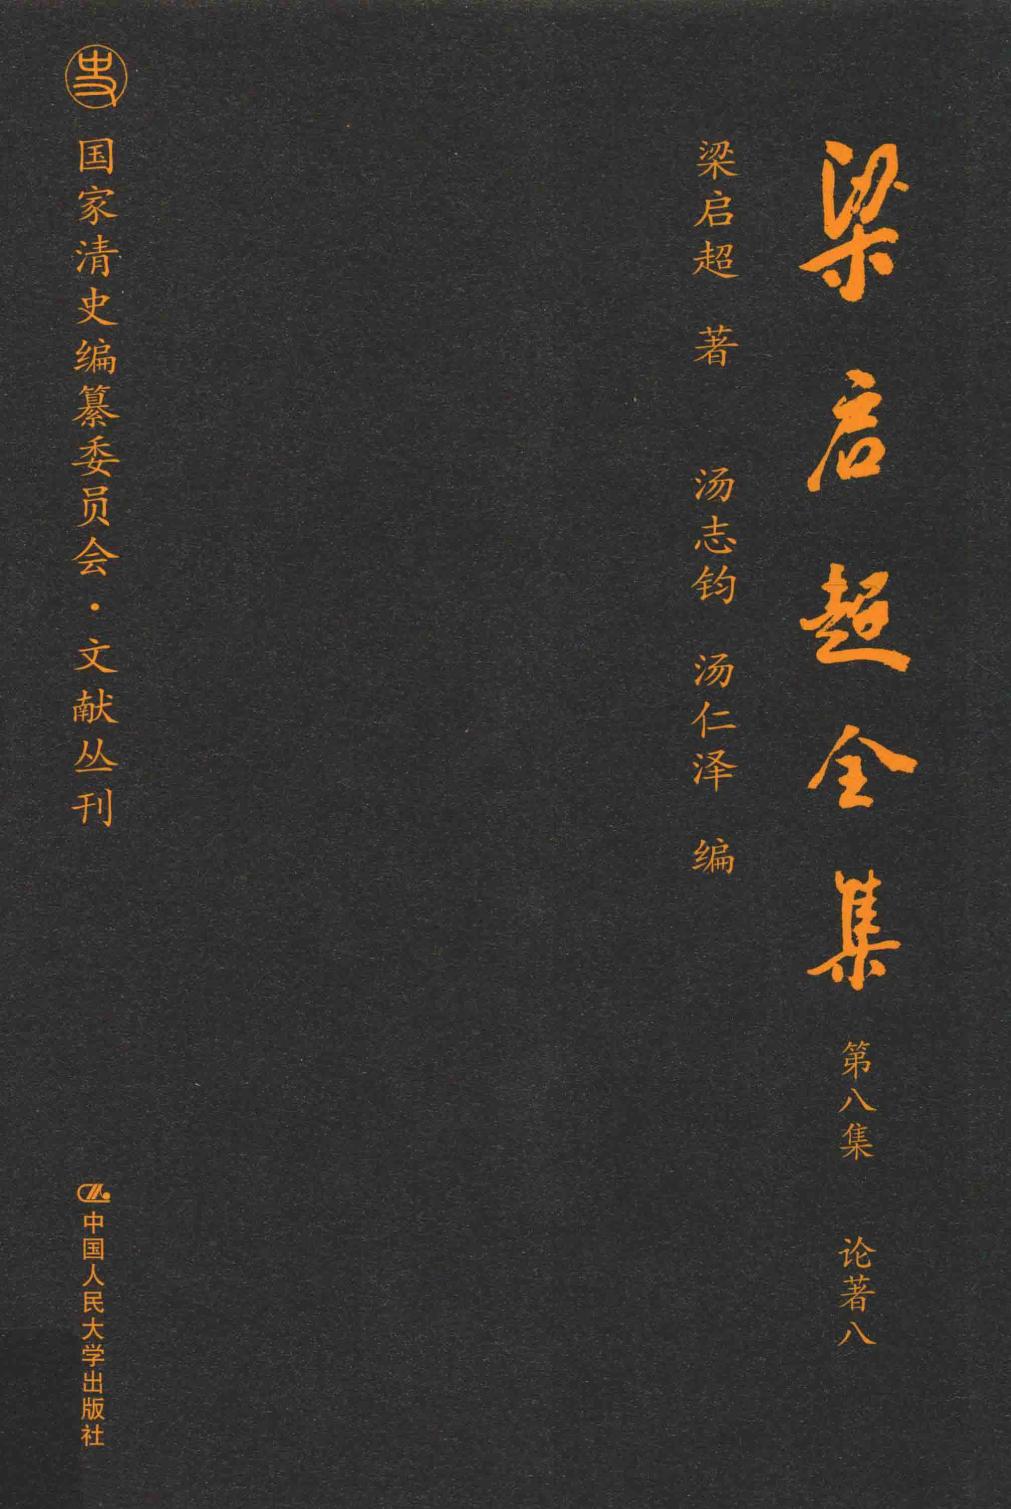 梁启超全集 第八集 论著八
梁启超 著 汤志钧 汤仁泽 编
国家清史编纂委员会·文献丛刊
中国人民大学出版社